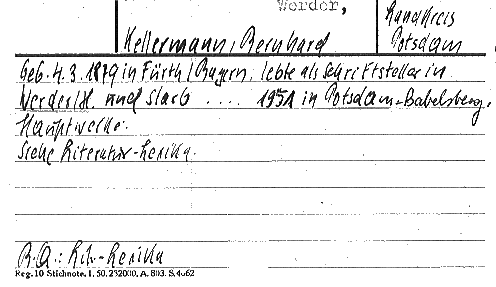 Werder,
Landkreis
Kellermann, Bernhard
Potsdam
Geb. 4.3.1879 in Fürth/Bayern, lebte als Schriftsteller in
Werder/H. und starb .... 1951 in Potsdam-Babelsberg.
Hauptwerke:
Siehe Literatur-Lexika.
B.Q.: Lit.-Lexika
Reg. 10 Stichnote. I. 50. 232000. A. 803. S. 4062